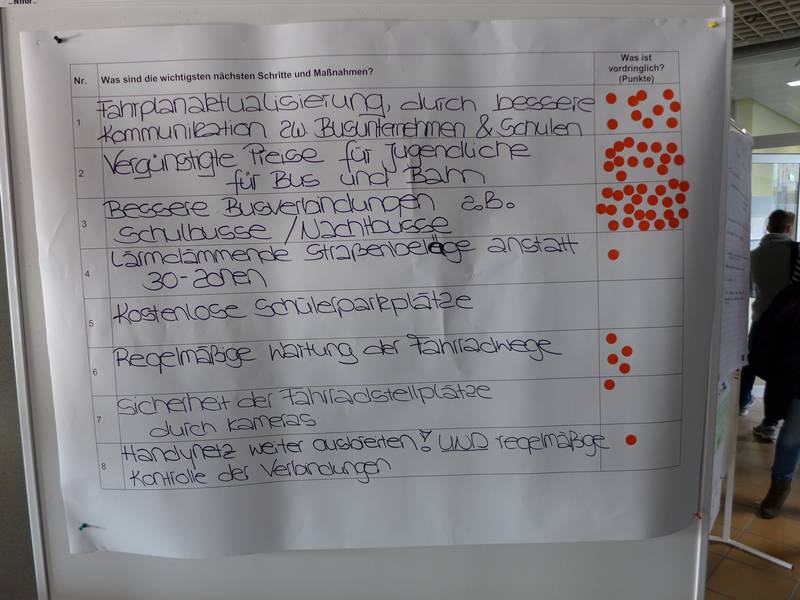 Nr. Was sind die wichtigsten nächsten Schritte und Maßnahmen? Was ist
vordringlich?
(Punkte)
1 Fahrplanaktualisierung, durch bessere
Kommunikation zw. Busunternehmen & Schulen
2 Vergünstigte Preise für Jugendliche
für Bus und Bahn
3 Bessere Busverbindungen z.B.
Schulbusse / Nachtbusse
4 Lärmdämmende Straßenbeläge anstatt
30-Zonen
5 Kostenlose Schülerparkplätze
6 Regelmäßige Wartung der Fahrradwege
7 Sicherheit der Fahrradstellplätze
durch Kameras
8 Handynetz weiter ausbierten! UND regelmäßige
Kontrolle der Verbindungen